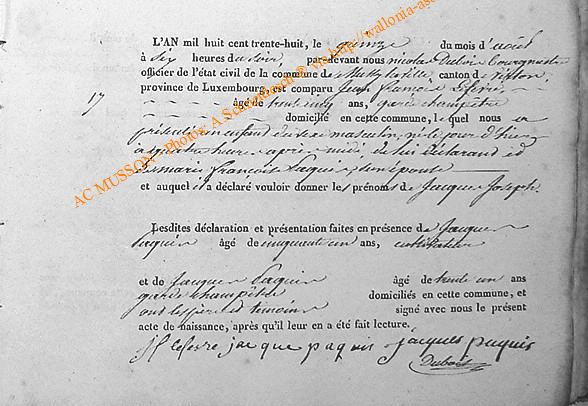 L'AN mil huit cent trente-huit, le quinze du mois d'août
à six heures du soir, par-devant nous nicolas Dubois Bourgmestre
officier de l'état civil de la commune de canton de
province de Luxembourg, est comparu Jean françois lefevre
17 âgé de trente cinq ans, garde champêtre
domicilié en cette commune, lequel nous a
présenté un enfant du sexe masculin, né le jour d'hier
à quatre heures après midi, de lui déclarant et
de marie françoise Paquis son épouse
et auquel il a déclaré vouloir donner les prénoms de Jacques Joseph.
Lesdites déclaration et présentation faites en présence de Jacques
Paquis âgé de cinquante un ans, cultivateur
et de Jacques Paquis âgé de trente un ans
garde champêtre domiciliés en cette commune, et
ont les père et témoins signé avec nous le présent
acte de naissance, après qu'il leur en a été fait lecture.
jf lefevre jacque paquis jacques paquis
Dubois
AC MUSSON - Photos: A Schaubroeck © vis http://wallonia-as